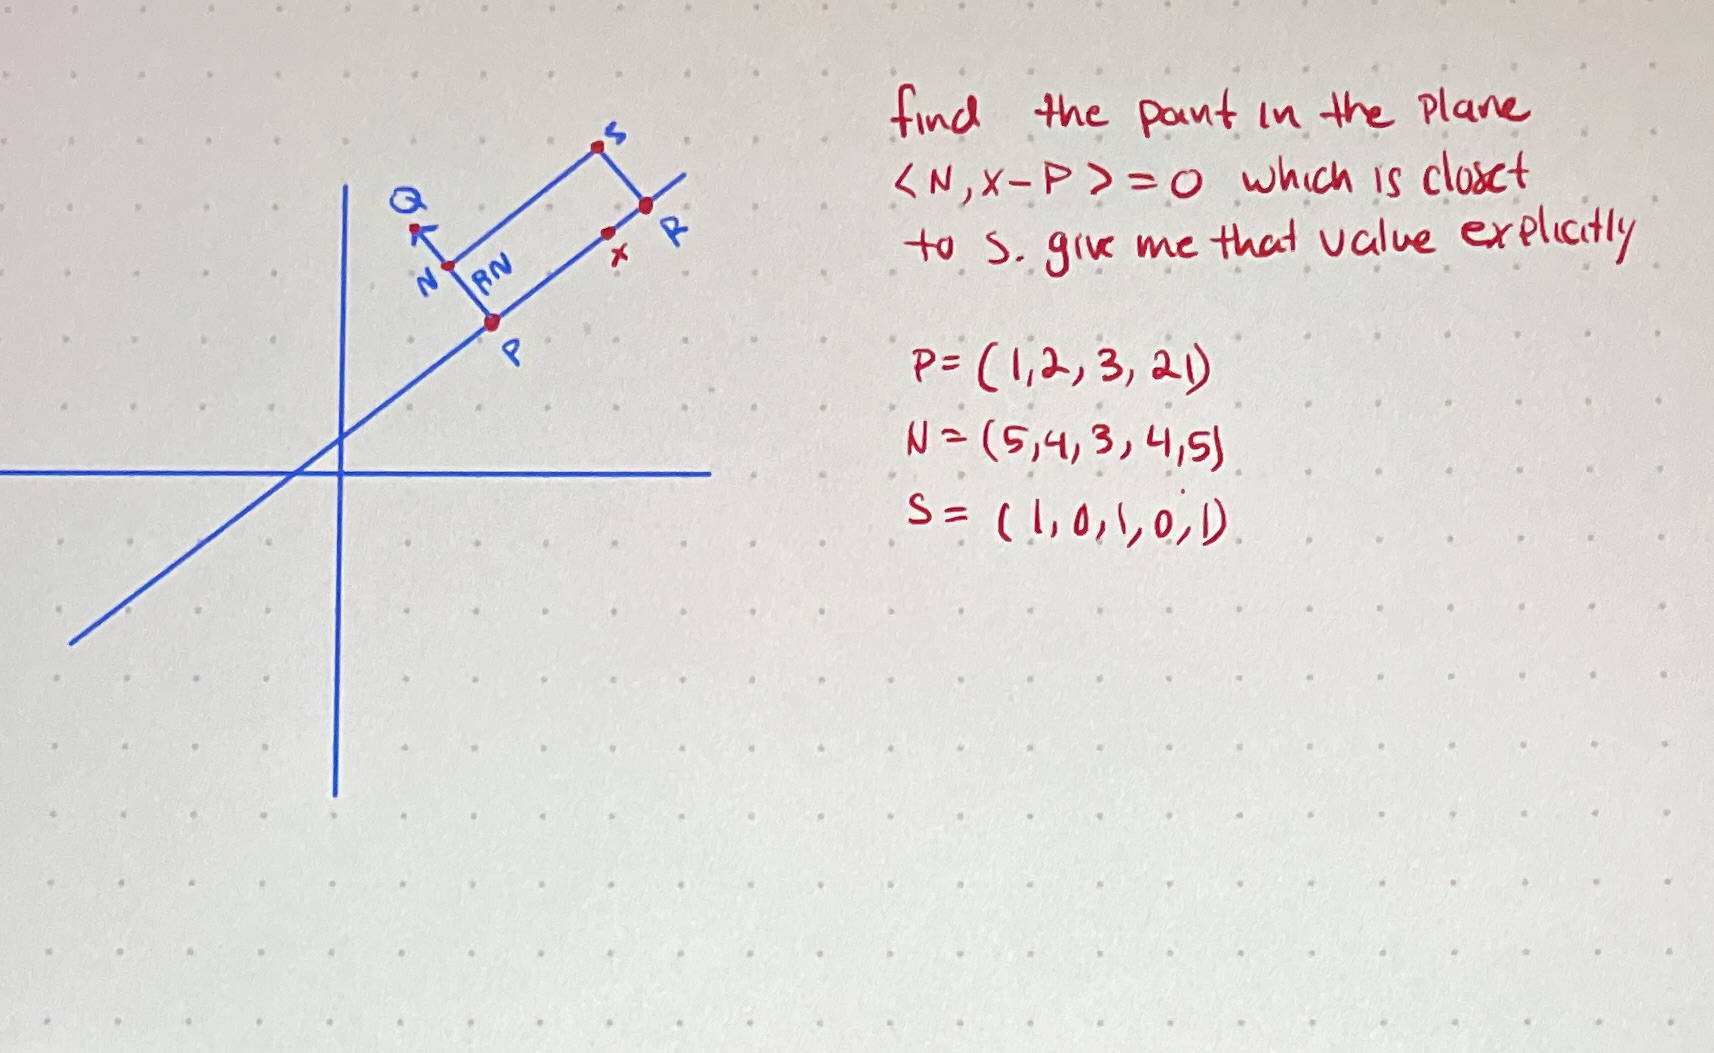 S
Q
N
RN
x
R
P
find the point in the plane
<N, x-P> = 0 which is closet
to S. give me that value explicitly
P= (1,2, 3, 21)
N = (5,4, 3, 4,5)
S = (1, 0, 1, 0, 1)